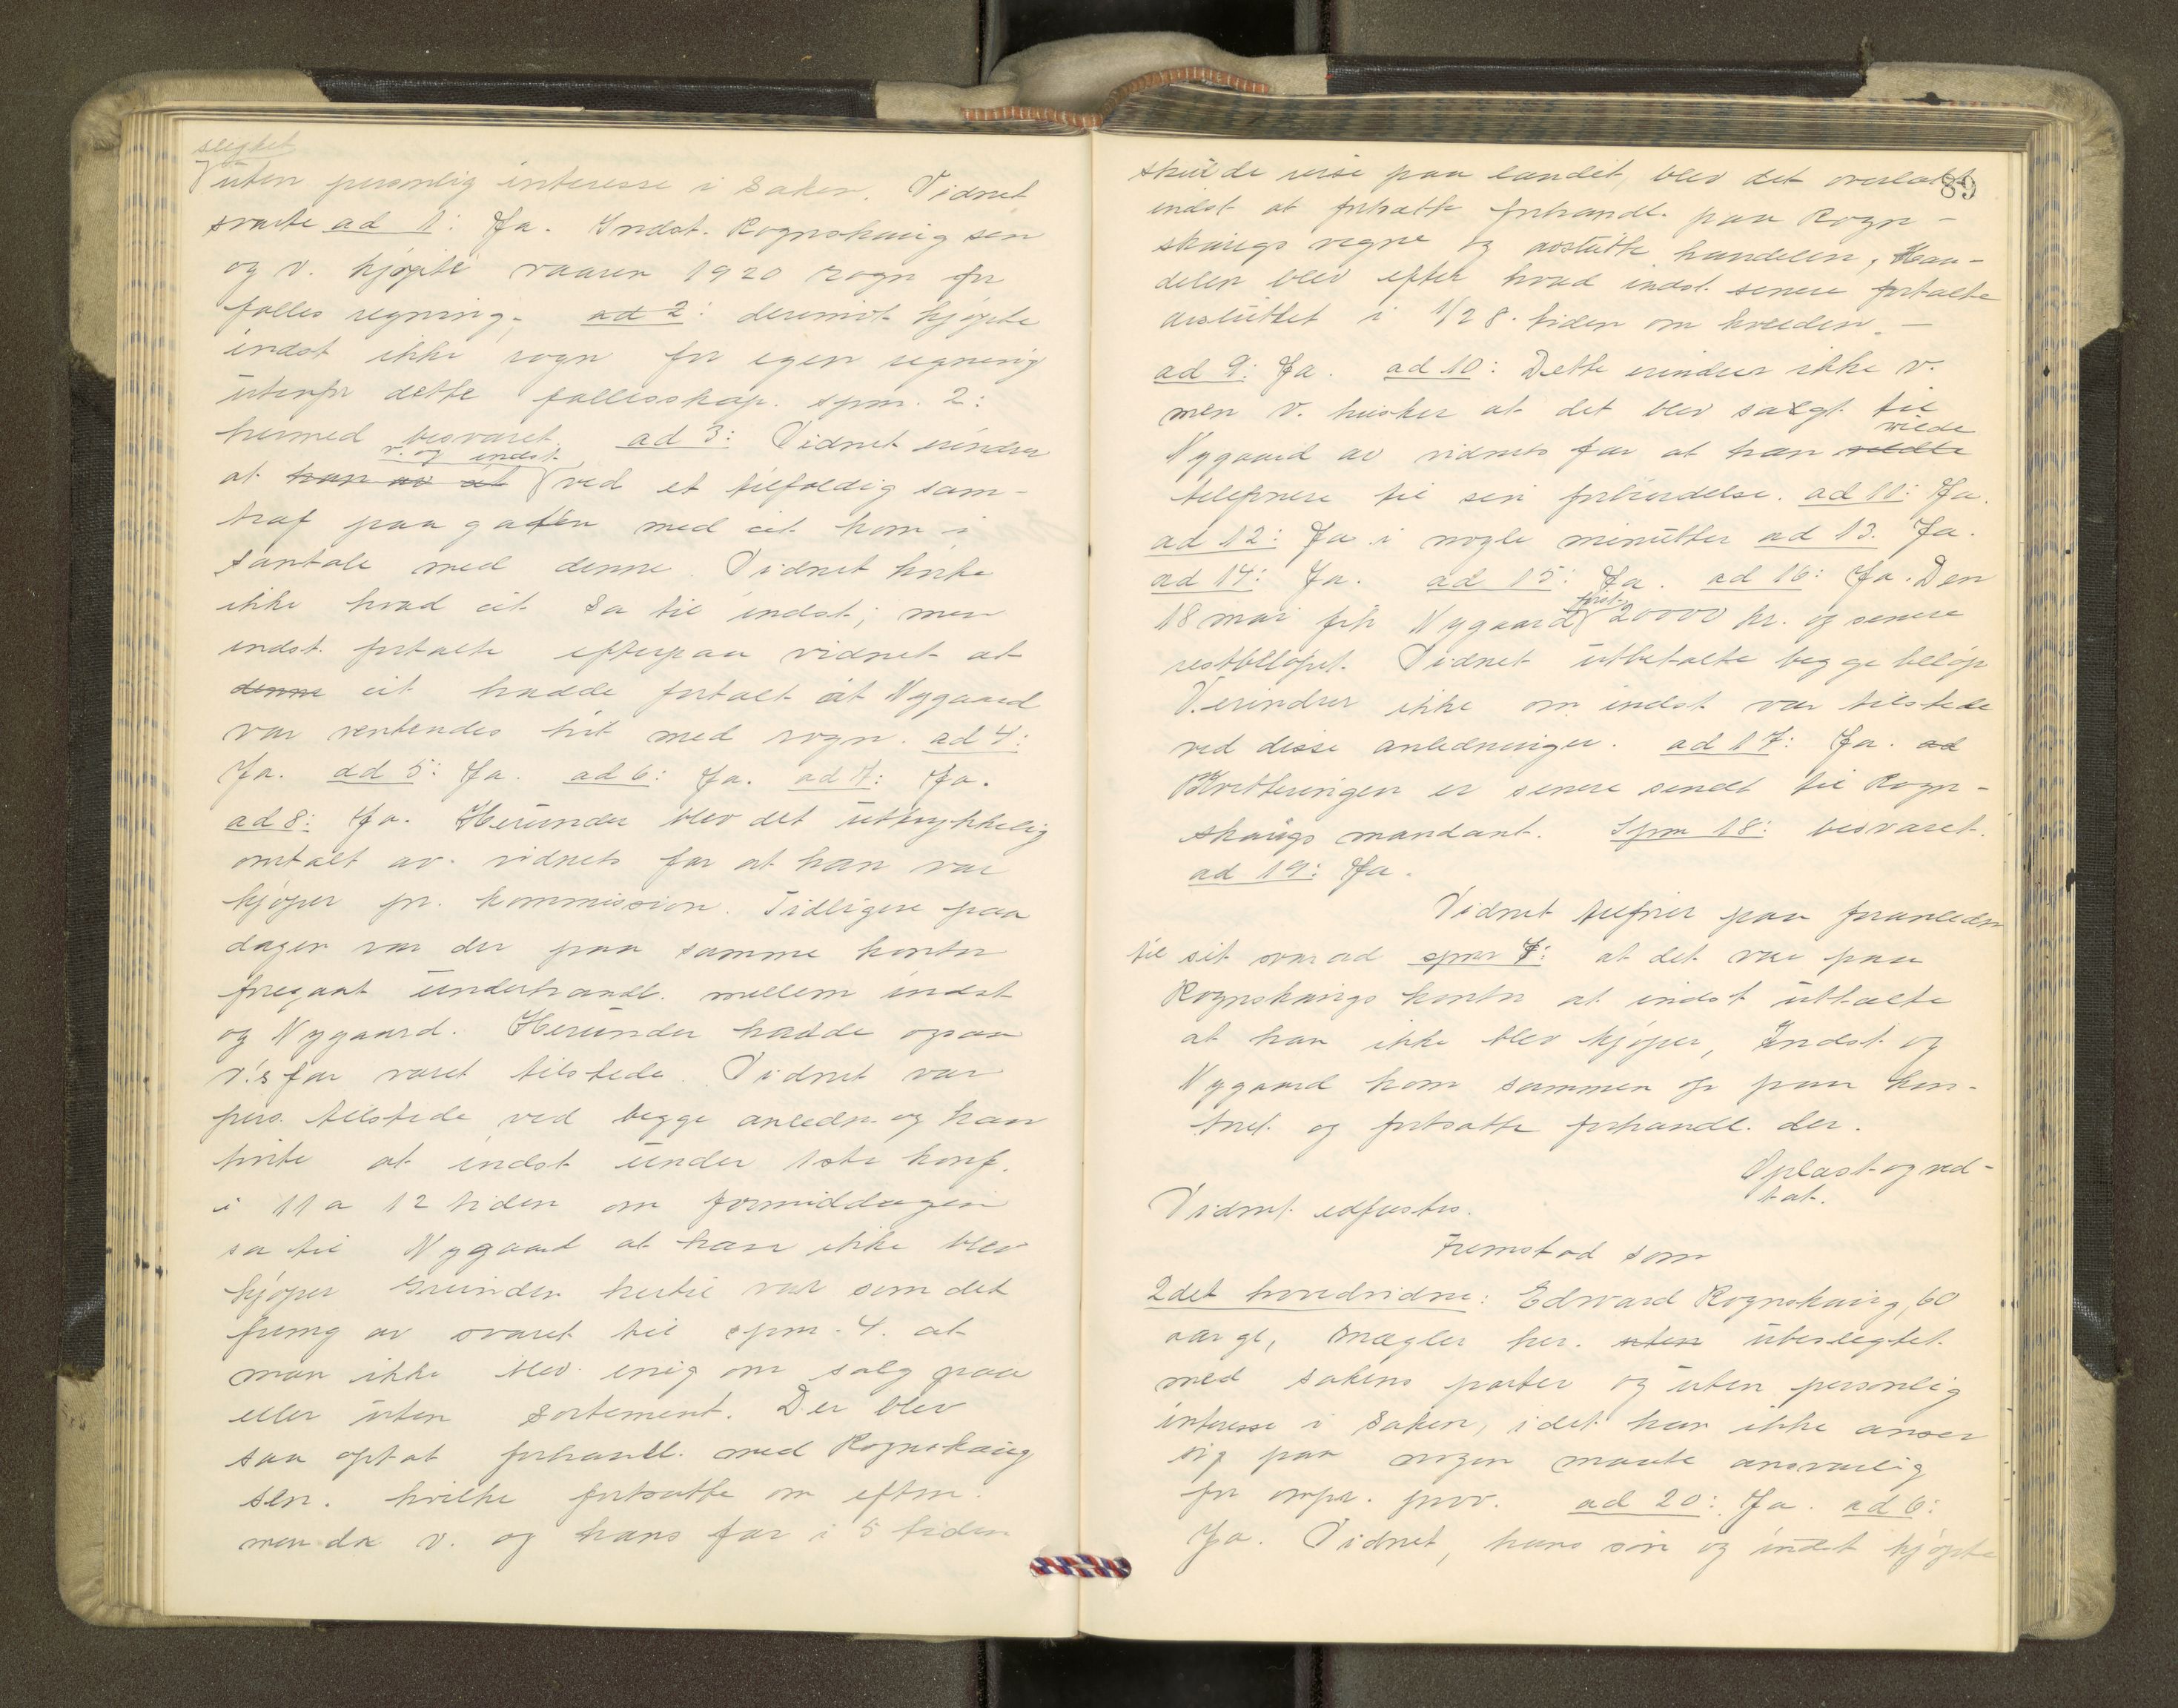 slegtet
uten personlig interesse i saken. Vidnet
svarte ad 1: Ja. Indst. Rognskaug sen
og v. kjøpte vaaren 1920 rogn for
fælles regning. ad 2: derimot kjøpte
indst ikke rogn for egen regning
utenfor dette fællesskap. spm. 2:
hermed besvaret. ad 3: Vidnet erindrer
v. og indst.
at han av cit ved et tilfældig sam-
traf paa gaten med cit kom i
samtale med denne. Vidnet hørte
ikke hvad cit sa til indst; men
indst. fortalte efterpaa vidnet at
denne cit hadde fortalt at Nygaard
var ventendes hit med rogn. ad 4:
Ja. ad 5: Ja. ad 6: Ja. ad 7: Ja.
ad 8: Ja. Herunder blev det uttrykkelig
omtalt av vidnets far at han var
kjøper pr. kommission. Tidligere paa
dagen var der paa samme kontor
foregaat underhandl. mellem indst
og Nygaard. Herunder hadde ogsaa
v.'s far været tilstede. Vidnet var
pers. tilstede ved begge anledn. og han
hørte at indst under 1ste konf.
i 11 a 12 tiden om formiddagen
sa til Nygaard at han ikke blev
kjøper Grunden hertil var som det
fremg av svaret til spm. 4. at
man ikke blev enig om salg paa
eller uten sortement. Der blev
saa optat forhandl. med Rognskaug
sen. hvilke fortsatte om efterm.
men da v. og hans far i 5 tiden
89
skulde reise paa landet, blev det overlatt
indst at fortsætte forhandl. paa Rogn-
skaugs vegne og avslutte handelen, Han-
delen blev efter hvad indst. senere fortalte
avsluttet i 1/2 8. tiden om kvelden. —
ad 9: Ja. ad 10: Dette erindrer ikke v.
men v. husker at det blev sagt til
vilde
Nygaard av vidnets far at han vildte
telefonere til sin forbindelse. ad 11: Ja.
ad 12: Ja i nogle minutter ad 13. Ja.
ad 14: Ja. ad 15: Ja. ad 16: Ja. Den
først
18 mai fik Nygaard 20000 kr. og senere
restbeløpet. Vidnet utbetalte begge beløp
V. erindrer ikke om indst var tilstede
ved disse anledninger. ad 17: Ja. ad
Kvitteringen er senere sendt til Rogn-
skaugs mandant. Spm 18: besvaret.
ad 19: Ja.
Vidnet tilføier paa foranledn
til sit svar ad spm 7: at det var paa
Rognskaugs kontor at indst uttalte
at han ikke blev kjøper, Indst og
Nygaard kom sammen op paa kon-
toret og fortsatte forhandl. der.
Oplæst og ved-
tat.
Vidnet edfæstes.
Fremstod som
2det hovedvidne: Edvard Rognskaug, 60
aar gl, mægler her. uten ubeslegtet
med sakens parter og uten personlig
interesse i saken, idet han ikke anser
sig paa nogen maate ansvarlig
for ompr. prov. ad 20: Ja. ad 6:
Ja. Vidnet, hans søn og indst kjøpte